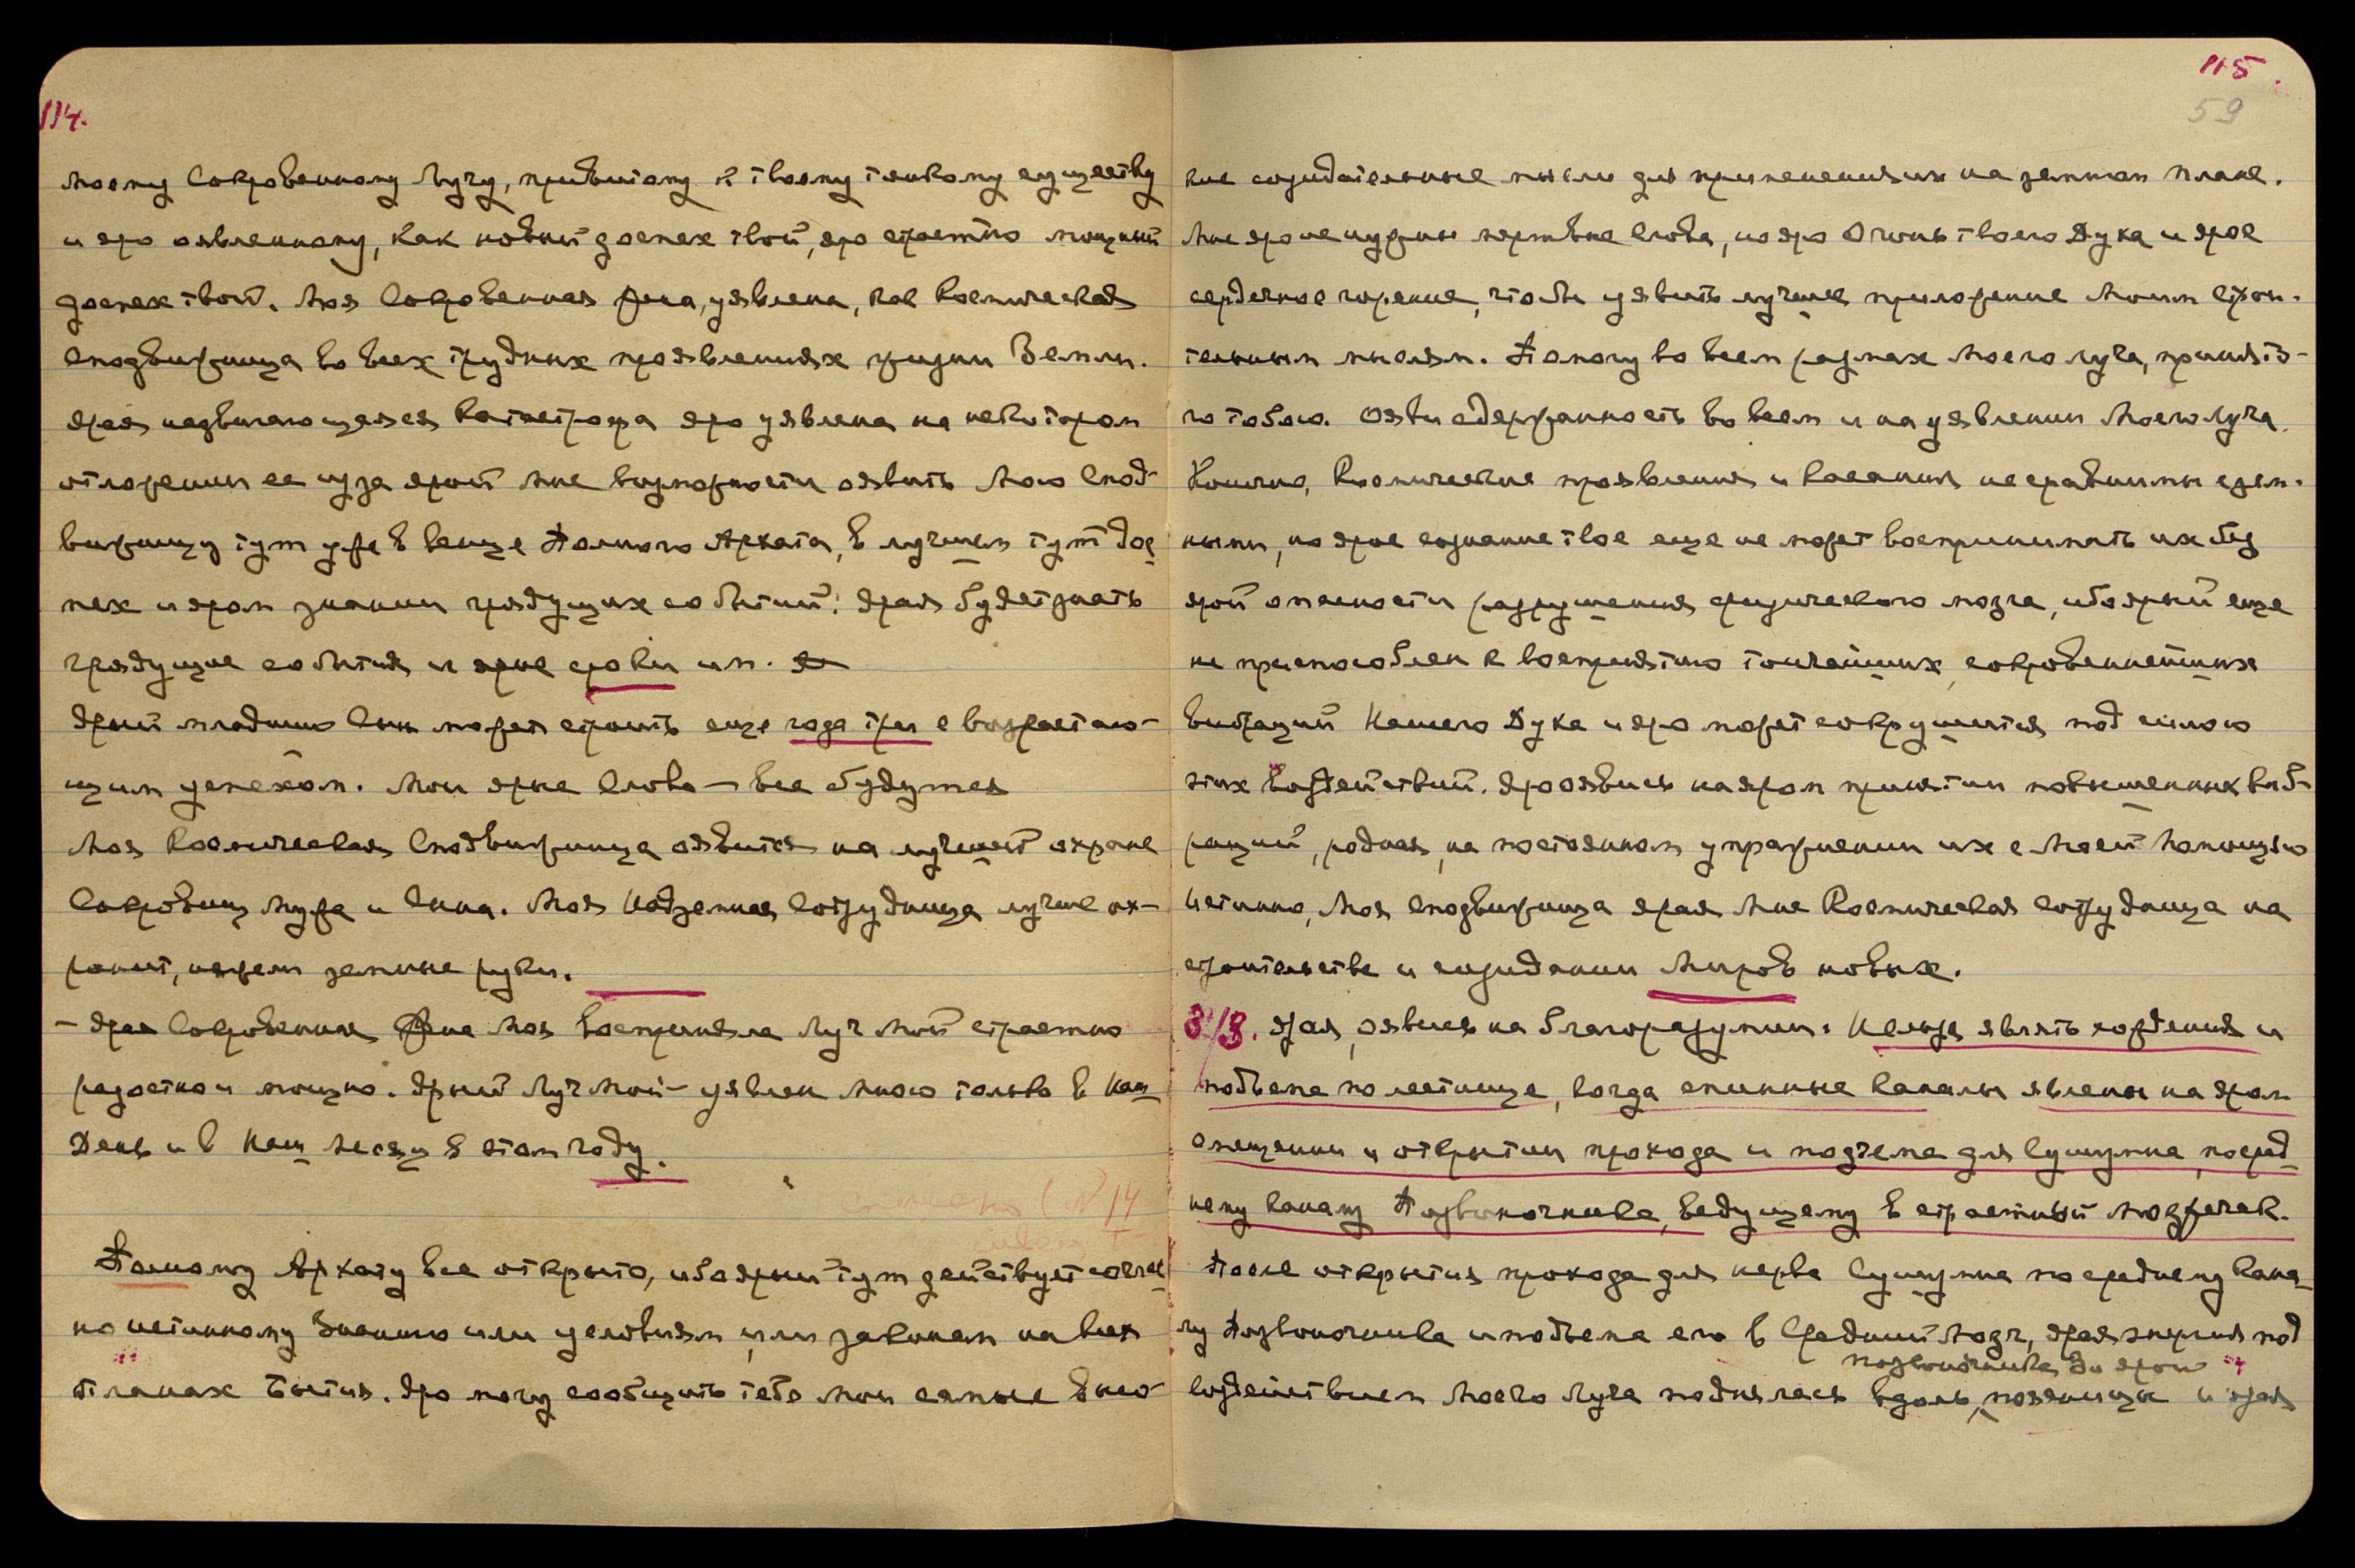 114.
Моему Сокровенному Лучу, привитому к твоему тонкому существу
и яро оявленному, как новый доспех твой, яро страстно мощный
доспех твой. Моя Сокровенная Жена, уявлена, как Космическая
Сподвижница во всех трудных проявлениях жизни Земли.
Ярая надвигающаяся Катастрофа яро уявлена на некотором
отложении ее из за ярой Мне возможности оявить Мою Спод-
вижницу тут уже в венце Полного Архата, в лучшем тут дос
пехе и яром знании грядущих событий. Ярая будет знать
грядущие события и ярые сроки им.
Ярый младший Сын может строить еще года три с возрастаю-
щим успехом. Мои ярые Слова — все сбудутся
Моя Космическая Сподвижница оявится на лучшей охране
Сокровищ Мужа и Сына. Моя Надземная Сотрудница лучше ох-
ранит, нежели земные руки.
— Ярая Сокровенная Жена Моя восприняла Луч Мой страстно
радостно и мощно. Ярый Луч Мой — уявлен Мною только в Наш
День и в Наш Месяц в этом году.
14
Полному Архату все открыто, ибо ярый тут действует соглас
но истинному Знанию или условиям, или законам на всех
планах Бытия. Яро могу сообщить тебе Мои самые высо-
115.
59
кие созидательные мысли для применения их на земном плане.
Мне яро не нужны мертвые слова, но яро Огонь твоего Духа и ярое
сердечное горение, чтобы уявить лучшее приложение Моим строи-
тельным мыслям. Помогу во всем размахе Моего луча, принято-
го тобою. Ояви сдержанность во всем и на уявлении Моего Луча.
Конечно, Космические проявления и касания несравнимы с зем-
ными, но ярое сознание твое еще не может воспринимать их без
ярой опасности разрушения физического мозга, ибо ярый еще
не приспособлен к восприятию тончайших, сокровеннейших
вибраций Нашего Духа и яро может сокрушиться под силою
этих воздействий. Яро оявись на яром принятии повышенных виб-
раций, родная, на постоянном упражнении их с Моей Помощью
Истинно, Моя Сподвижница ярая Мне Космическая Сотрудница на
строительстве и созидании Миров новых.
3/8. Ярая, оявись на благоразумии. Нельзя являть хождения и
подъема по лестнице, когда спинные каналы явлены на яром
смещении и открытии прохода и подъема для Сушумна, по сред
нему каналу Позвоночника, ведущему в страстный мозжечек.
После открытия прохода для нерва Сушумна по среднему кана
лу Позвоночника и подъема его в Средний Мозг, ярая энергия под
позвоночника до ярой
воздействием Моего Луча поднялась вдоль поясницы и ярая